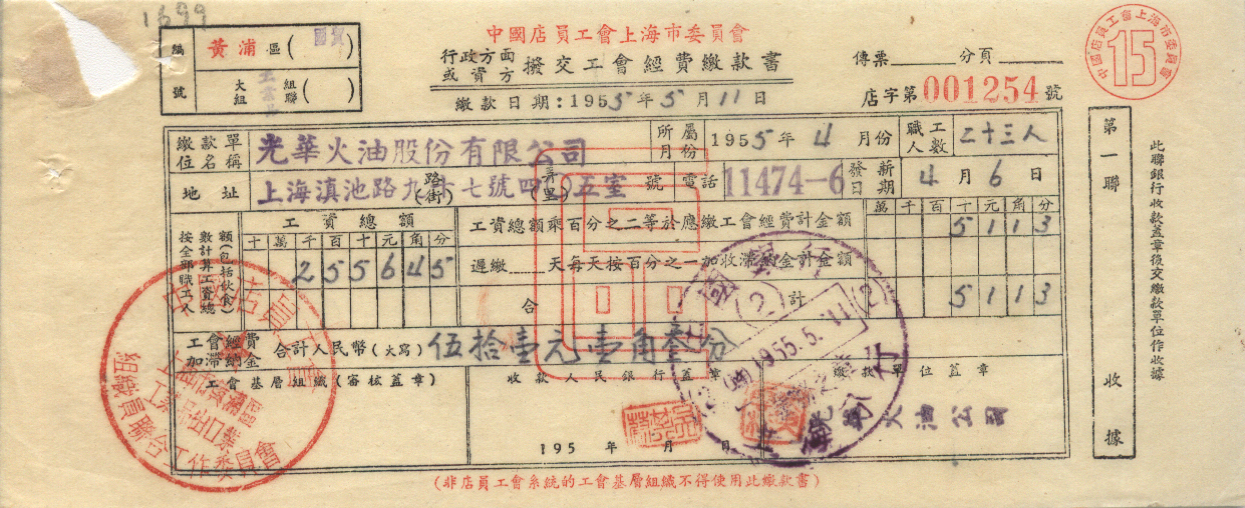 1699
編號
黃浦區( )
大組 組聯( )
中國店員工會上海市委員會
行政方面或資方 撥交工會經費繳款書
繳款日期:1955年5月11日
傳票 分頁
店字第001254號
中國店員工會上海市委員會
15
繳款單位名稱 光華火油股份有限公司
所屬月份 1955年4月份
職工人數 二十三人
地址 上海滇池路九 七號四 五室
路(街) 弄(里) 號
電話 11474-6
發薪日期 4月6日
按全部職工人數計算工資總額(包括伙食)
工資總額
十萬千百十元角分
255645
工資總額乘百分之二等於應繳工會經費計金額
萬千百十元角分
5113
遲繳 天每天按百分之一加收滯納金計金額
合計
5113
工會經費加滯納金 合計人民幣(大寫) 伍拾壹元壹角叁分
工會基層組織(審核蓋章)
收款人民銀行蓋章
繳款單位蓋章
195 年 月 日
中國店員工會
組織員聯合工作委員會
1955.5.11
火油公司
(非店員工會系統的工會基層組織不得使用此繳款書)
第一聯
收據
此聯銀行收款蓋章後交繳款單位作收據